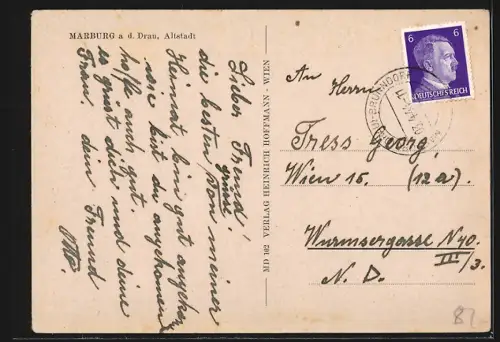 MARBURG a d. Drau, Altstadt
Lieber Freund!
die besten grüsse von meiner
Heimat bin gut angekom
wie bist du angekommen
hoffe auch gut.
es grüst dich und deine
Frau. dein Freund
Otto.
MD 162 VERLAG HEINRICH HOFFMANN - WIEN
6 6
DEUTSCHES REICH
An Herrn
Fress Georg,
Wien 15. (12a).
Wurmsergasse N 40.
III/3.
N. D.